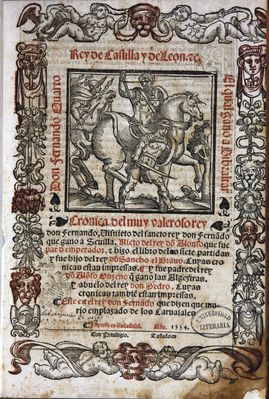 Rey de Castilla y de Leon. ꝛc.
Don Fernando Quarto
El que gano a Gibraltar
Cronica del muy valeroso rey
don Fernando, Visnieto del sancto rey don Fernādo
que gano a Seuilla. Nieto del rey dō Alonso que fue
par ē emperador, z hizo el libro de las siete partidas
y fue hijo del rey dō Sancho el Brauo, Cuyas cro
nicas estan impressas. Y fue padre del rey
dō Alōso Onzeno q̄ gano las Algeziras.
Y abuelo del rey don Pedro, cuyas
cronicas tambiē estan impressas.
Este es el rey don Fernādo que dizen que mu
rio emplazado de los Caruajales
Impresso en Valladolid. Año. 1554.
Con Priuilegio. Tassado en
UNIVERSIDAD
LITERARIA